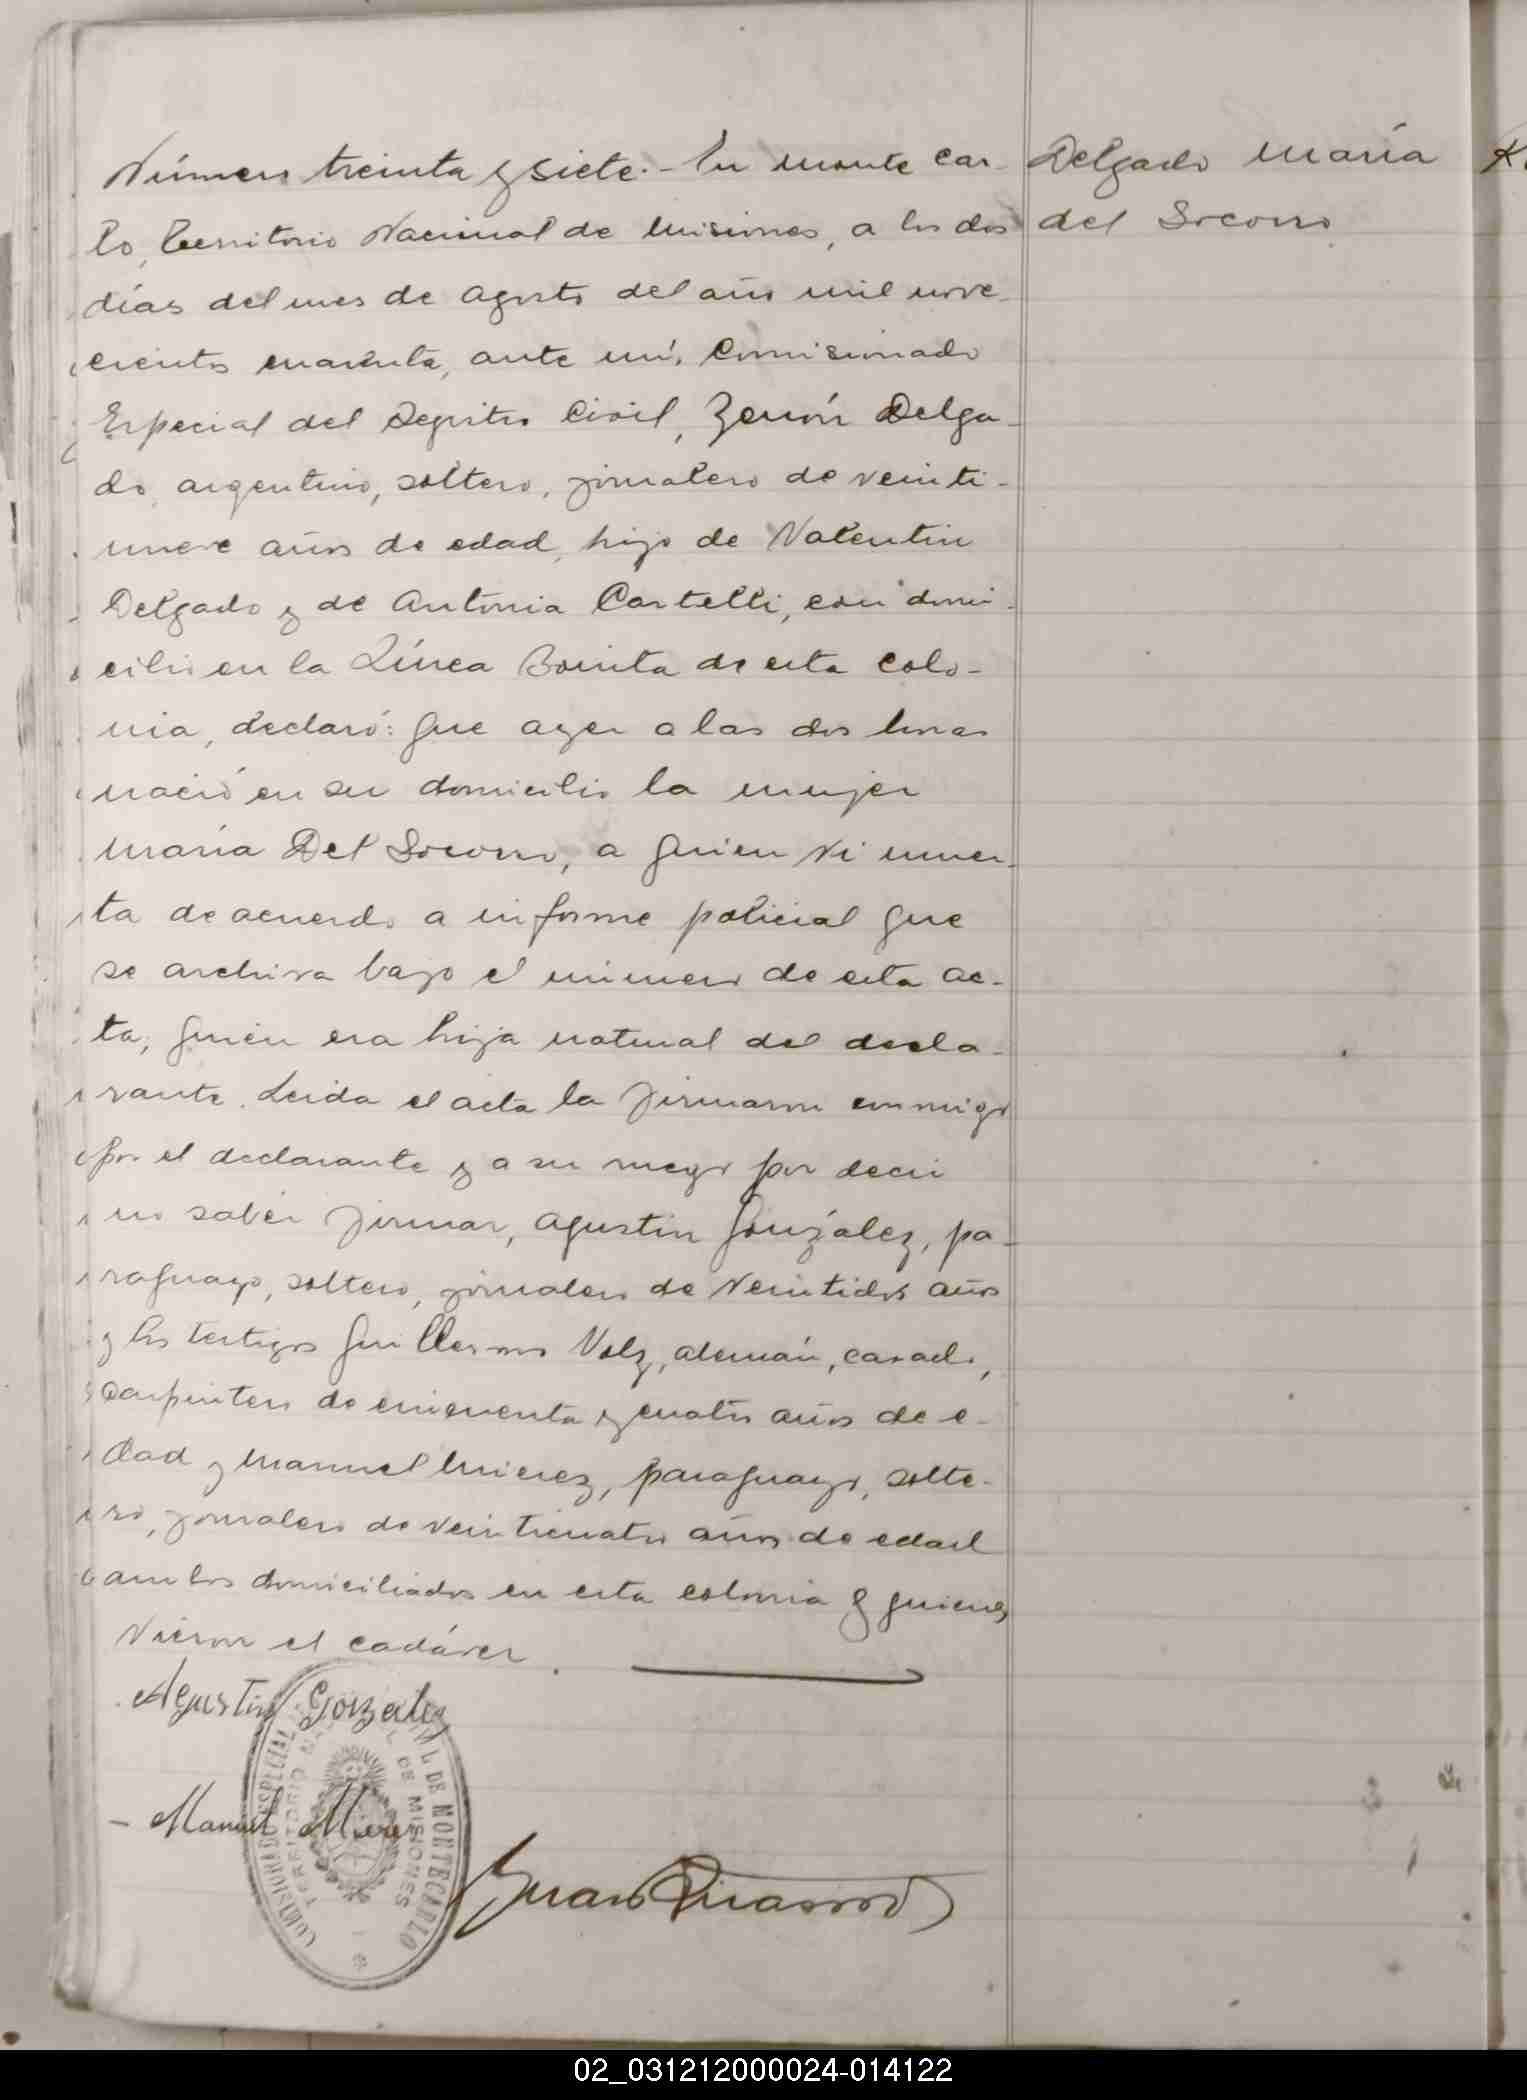 Número treinta y siete.- En monte car- Delgado María
lo, Territorio Nacional de Misiones, a los dos del Socorro
días del mes de agosto del año mil nove-
cientos cuarenta, ante mí, Comisionado
Especial del Registro Civil, Zenón Delga-
do, argentino, soltero, jornalero de veinti-
nueve años de edad, hijo de Valentin
Delgado y de Antonia Cartelli, con domi-
cilio en la Línea Bonita de esta colo-
nia, declaró: que ayer a las dos horas
nació en su domicilio la mujer
María Del Socorro, a quien vi muer-
ta de acuerdo a informe policial que
se archiva bajo el número de esta ac-
ta, quien era hija natural del decla-
rante. Leida el acta la firmaron conmigo
por el declarante y a su ruego por decir
no saber firmar, Agustin González, pa-
raguayo, soltero, jornalero de veintidos años
y los testigos Guillermo Volz, alemán, casado,
carpintero de cincuenta y cuatro años de e-
dad y Manuel Mierez, paraguayo, solte-
ro, jornalero de veinticuatro años de edad
ambos domiciliados en esta colonia y quienes
vieron el cadáver.
Agustin Gonzalez
COMISIONADO ESPECIAL CIVIL DE MONTECARLO
TERRITORIO NAL DE MISIONES
- Manuel Mierez
02_031212000024-014122